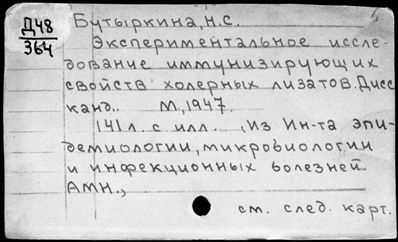 Д48
364
Бутыркина, Н.С.
Экспериментальное иссле-
дование иммунизирующих
свойств холерных лизатов. Дисс
канд.. М., 1947.
141 л. с илл. , Из Ин-та эпи-
демиологии, микробиологии
и инфекционных болезней
АМН.,
см. след. карт.